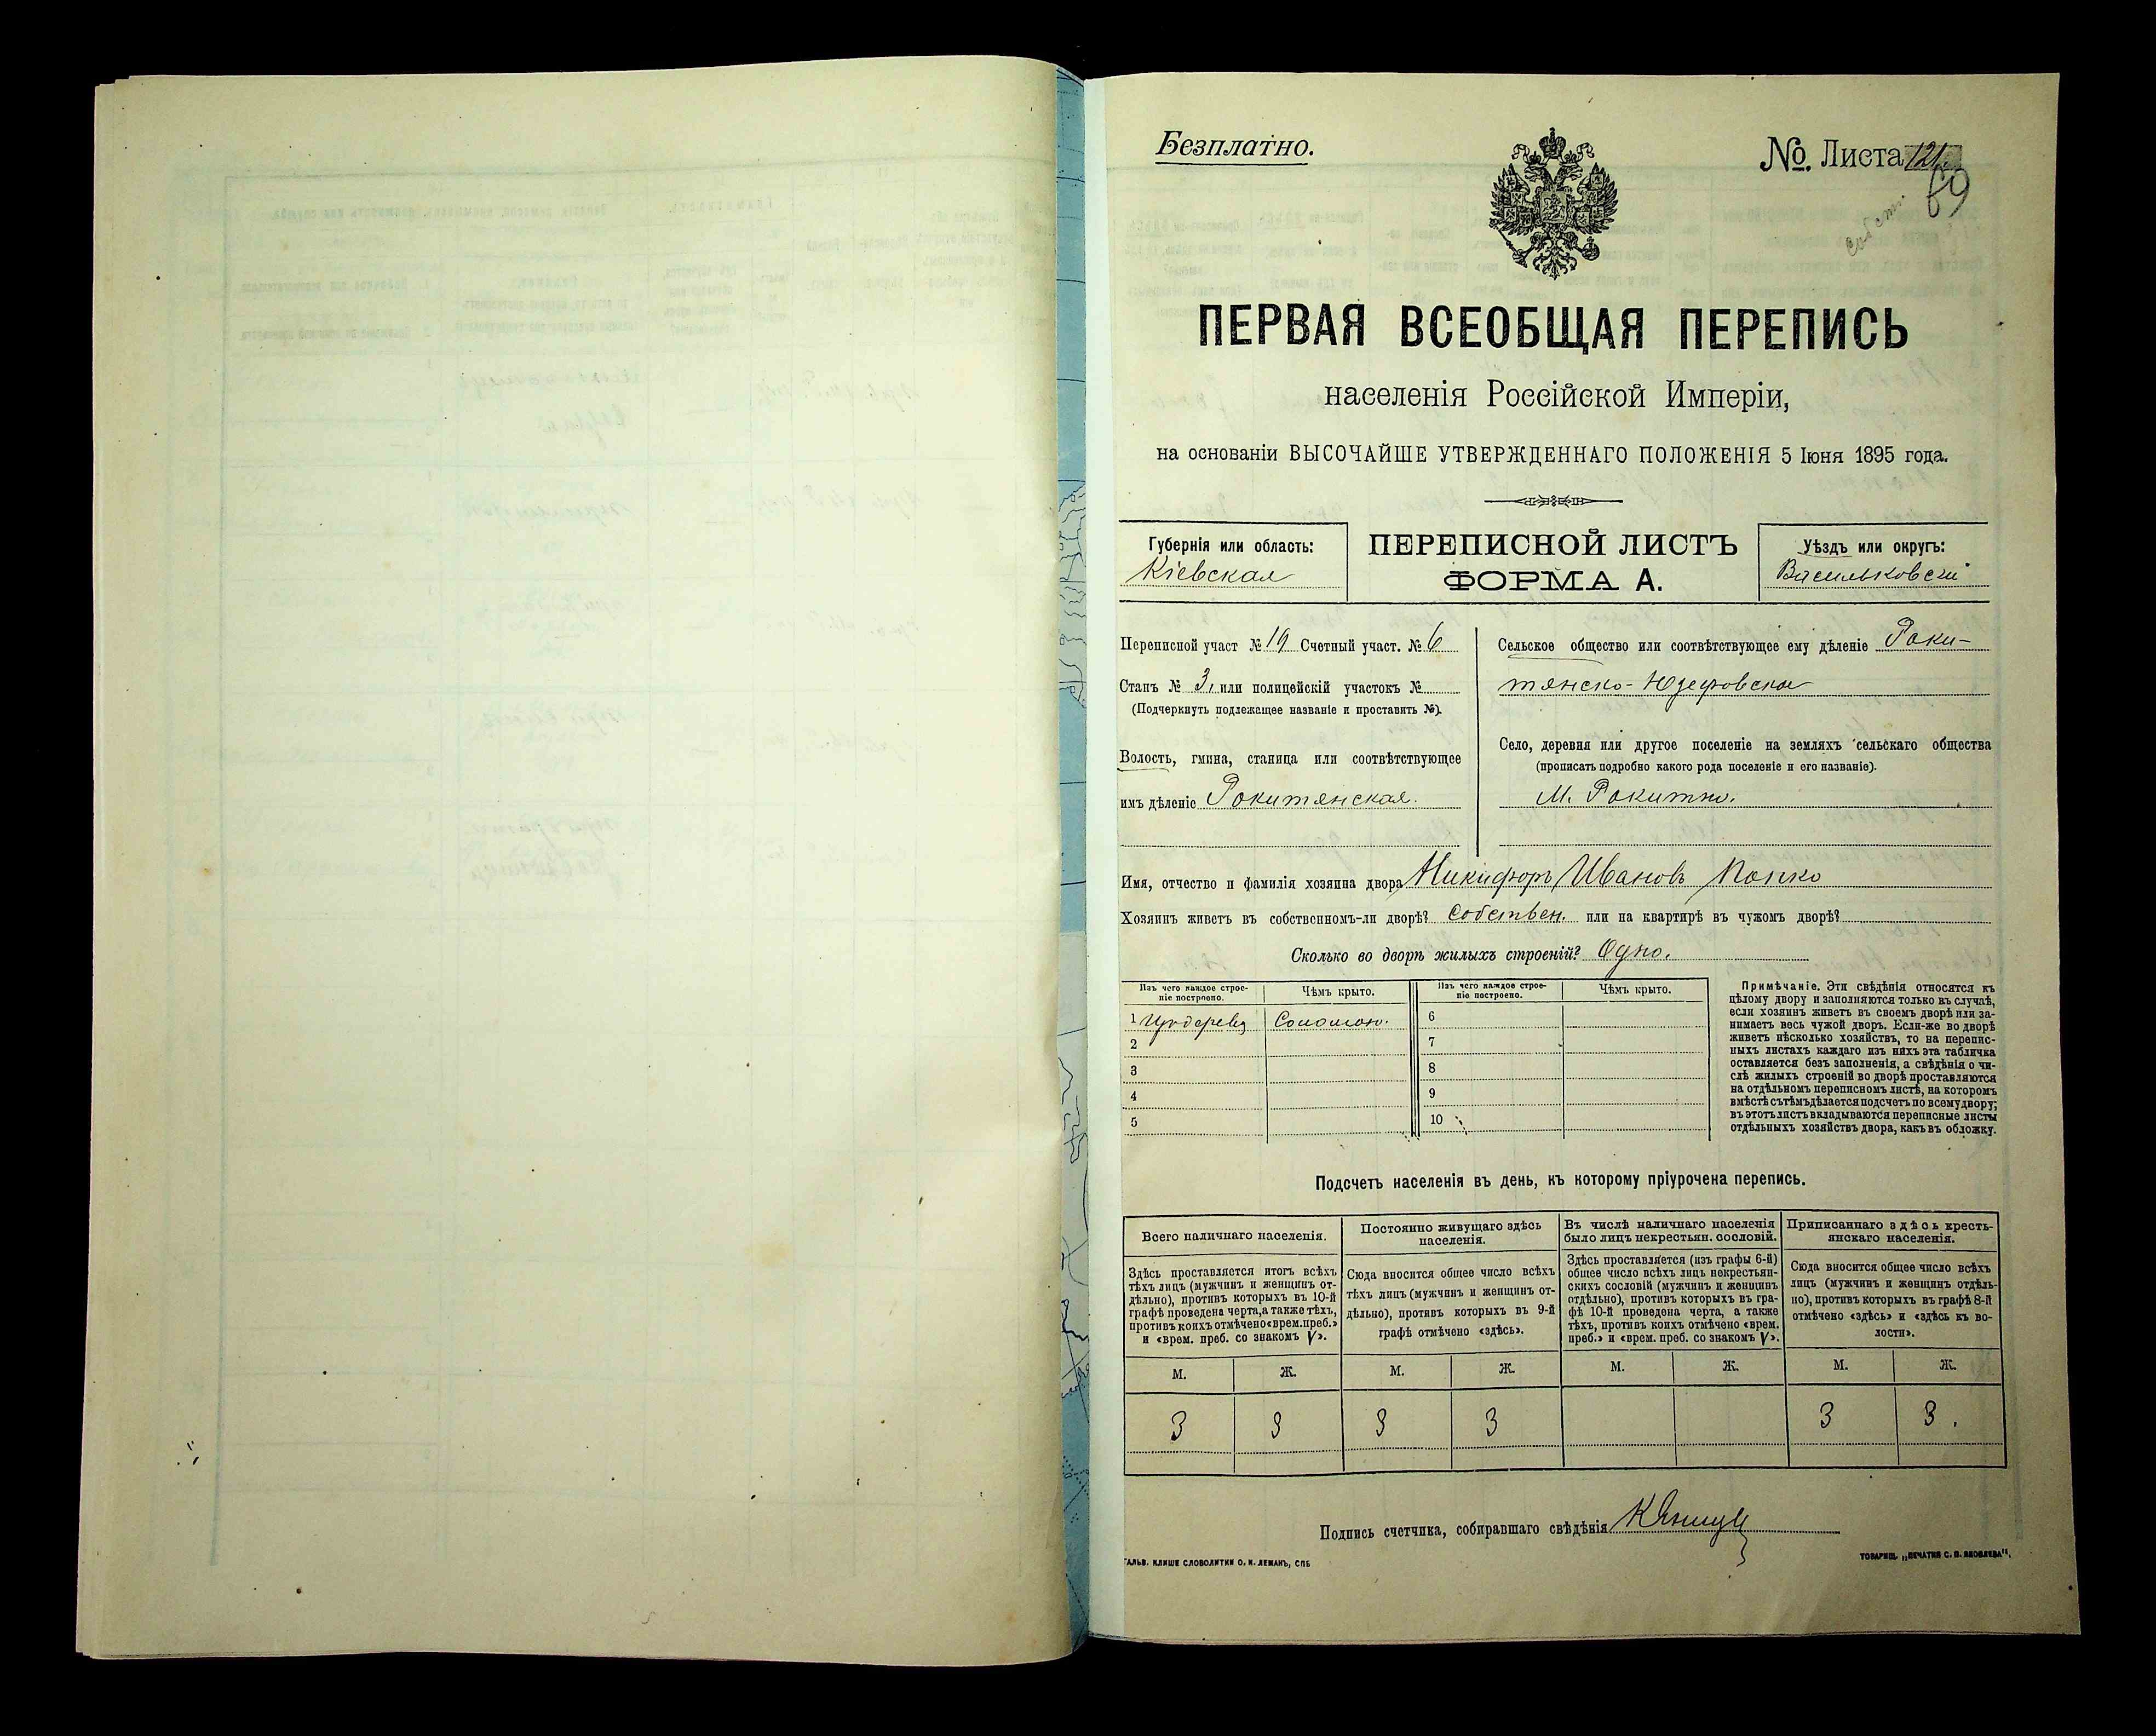 Безплатно.
№ Листа 121.
69
ПЕРВАЯ ВСЕОБЩАЯ ПЕРЕПИСЬ
населенія Россійской Имперіи,
на основаніи ВЫСОЧАЙШЕ УТВЕРЖДЕННАГО ПОЛОЖЕНІЯ 5 Іюня 1895 года.
Губернія или область:
Кіевская
ПЕРЕПИСНОЙ ЛИСТЪ
ФОРМА А.
Уѣздъ или округъ:
Васильковскій
Переписной участ № 19 Счетный участ. № 6
Станъ № 3, или полицейскій участокъ №
(Подчеркнуть подлежащее названіе и проставить №).
Волость, гмина, станица или соотвѣтствующее
имъ дѣленіе Рокитянская.
Сельское общество или соотвѣтствующее ему дѣленіе Роки-
тянско-Юзефовское
Село, деревня или другое поселеніе на земляхъ сельскаго общества
(прописать подробно какого рода поселеніе и его названіе).
М. Рокитно.
Имя, отчество и фамилія хозяина двора Никифоръ Ивановъ Попко
Хозяинъ живетъ въ собственномъ-ли дворѣ? Собствен. или на квартирѣ въ чужомъ дворѣ?
Сколько во дворѣ жилыхъ строеній? Одно.
Изъ чего каждое строе-
ніе построено.
Чѣмъ крыто.
Изъ чего каждое строе-
ніе построено.
Чѣмъ крыто.
1 Соломою. 6
2 7
3 8
4 9
5 10
Примѣчаніе. Эти свѣдѣнія относятся къ
цѣлому двору и заполняются только въ случаѣ,
если хозяинъ живетъ въ своемъ дворѣ или за-
нимаетъ весь чужой дворъ. Если-же во дворѣ
живетъ нѣсколько хозяйствъ, то на перепис-
ныхъ листахъ каждаго изъ нихъ эта табличка
оставляется безъ заполненія, а свѣдѣнія о чи-
слѣ жилыхъ строеній во дворѣ проставляются
на отдѣльномъ переписномъ листѣ, на которомъ
вмѣстѣ сътѣмъ дѣлается подсчетъ по всему двору;
въ этотъ листъ вкладываются переписные листы
отдѣльныхъ хозяйствъ двора, какъ въ обложку.
Подсчетъ населенія въ день, къ которому пріурочена перепись.
Всего наличнаго населенія.
Здѣсь проставляется итогъ всѣхъ
тѣхъ лицъ (мужчинъ и женщинъ от-
дѣльно), противъ которыхъ въ 10-й
графѣ проведена черта, а также тѣхъ,
противъ коихъ отмѣчено «врем. преб.»
и «врем. преб. со знакомъ V».
Постоянно живущаго здѣсь
населенія.
Сюда вносится общее число всѣхъ
тѣхъ лицъ (мужчинъ и женщинъ от-
дѣльно), противъ которыхъ въ 9-й
графѣ отмѣчено «здѣсь».
Въ числѣ наличнаго населенія
было лицъ некрестьян. сословій.
Здѣсь проставляется (изъ графы 6-й)
общее число всѣхъ лицъ некрестьян-
скихъ сословій (мужчинъ и женщинъ
отдѣльно), противъ которыхъ въ гра-
фѣ 10-й проведена черта, а также
тѣхъ, противъ коихъ отмѣчено «врем.
преб.» и «врем. преб. со знакомъ V».
Приписаннаго здѣсь кресть-
янскаго населенія.
Сюда вносится общее число всѣхъ
лицъ (мужчинъ и женщинъ отдѣль-
но), противъ которыхъ въ графѣ 8-й
отмѣчено «здѣсь» и «здѣсь къ во-
лости».
М. Ж. М. Ж. М. Ж. М. Ж.
3 3 3 3 3 3.
Подпись счетчика, собиравшаго свѣдѣнія
ГАЛЬВ. КЛИШЕ СЛОВОЛИТНИ О. И. ЛЕМАНЪ, СПБ
ТОВАРИЩ. „ПЕЧАТНЯ С. П. ЯКОВЛЕВА".